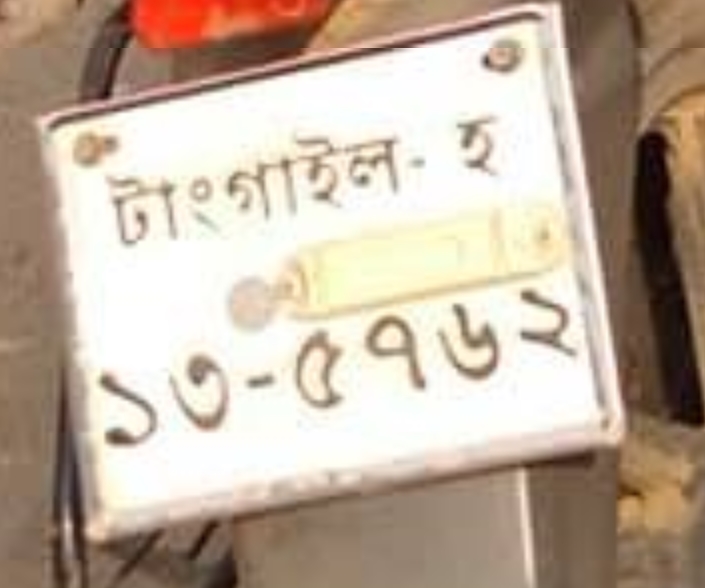 টাংগাইল- হ
১৩-৫৭৬২